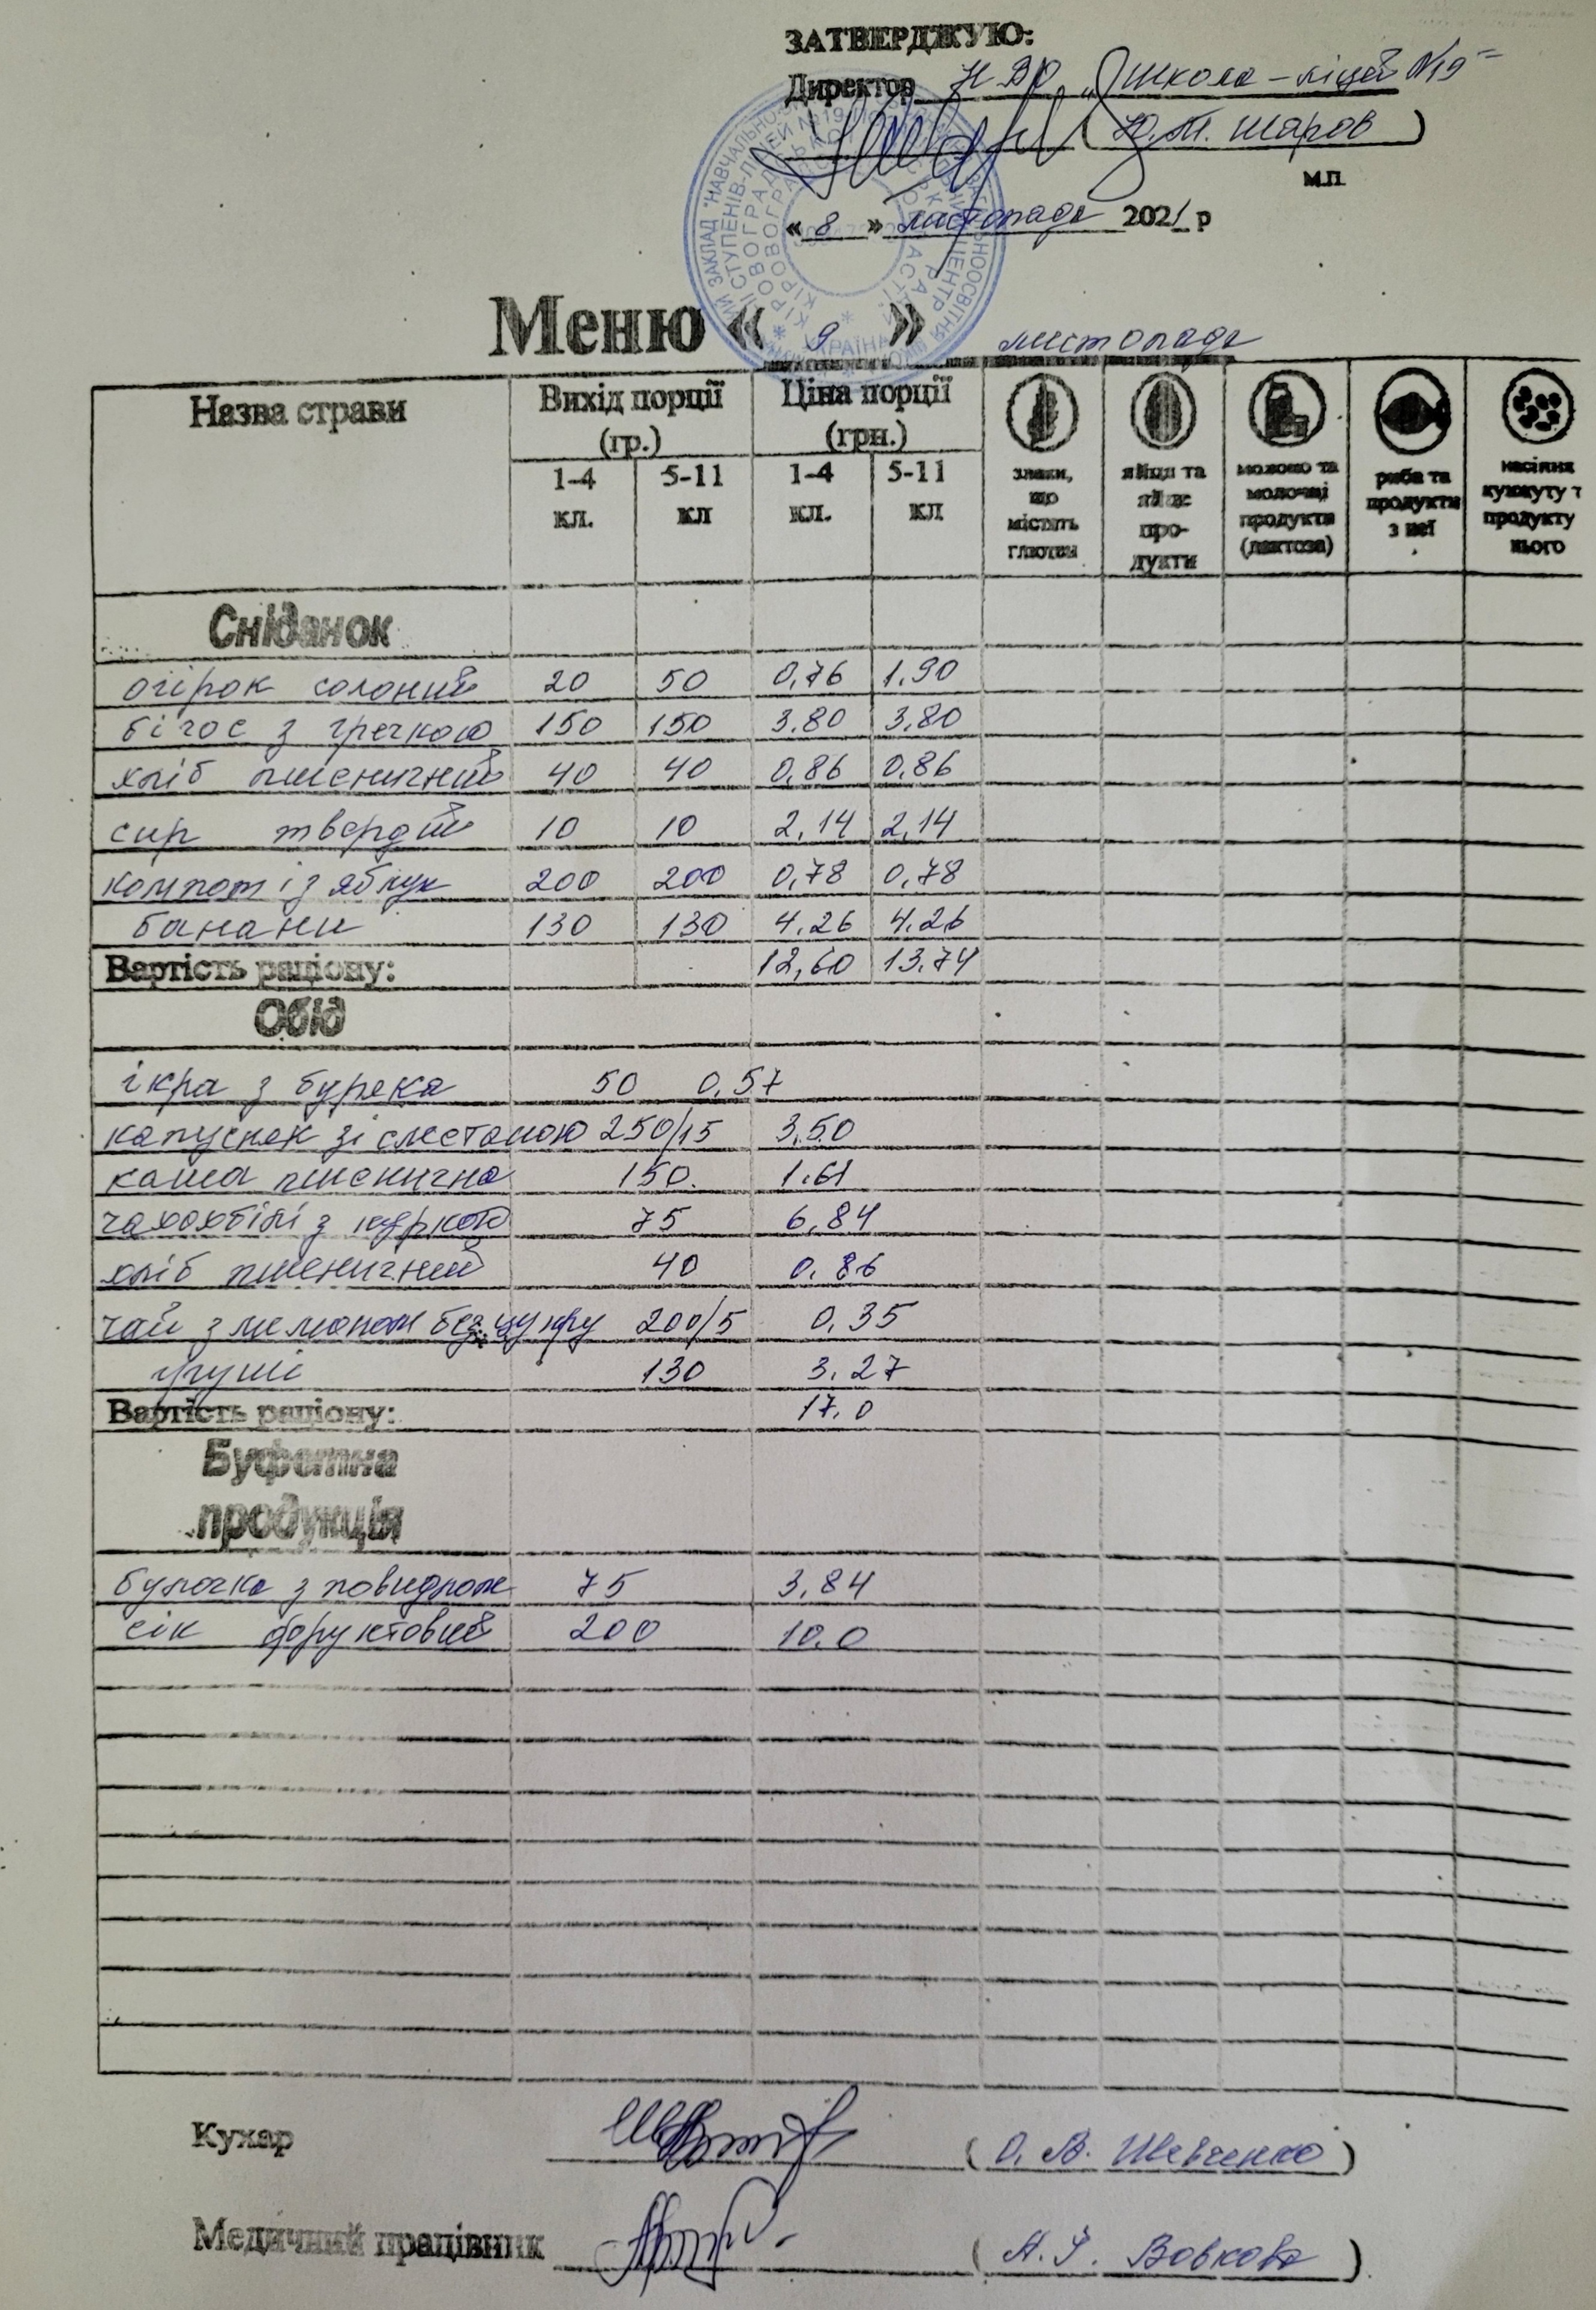 ЗАТВЕРДЖУЮ:
Директор НВО "Школа-ліцей №19"
(Ю.М. Шаров)
м.п.
« 8 » листопада 2021 р
Меню « 9 » листопада
Назва страви Вихід порції (гр.) Ціна порції (грн.)
1-4 кл. 5-11 кл 1-4 кл. 5-11 кл
злаки, що містять глютен
яйця та яйце про-дукти
молоко та молочні продукти (лактоза)
риба та продукти з неї
насіння кунжуту т продукту нього
Сніданок
огірок солоний 20 50 0,76 1.90
бігос з гречкою 150 150 3.80 3.80
хліб пшеничний 40 40 0,86 0,86
сир твердий 10 10 2,14 2,14
компот із яблук 200 200 0,78 0,78
банани 130 130 4.26 4.26
Вартість раціону: 12,60 13.74
Обід
ікра з буряка 50 0,57
капусняк зі сметаною 250/15 3,50
каша пшенична 150. 1.61
чахохбілі з куркою 75 6,84
хліб пшеничний 40 0.86
чай з лимоном без цукру 200/5 0,35
груші 130 3.27
Вартість раціону: 17.0
Буфетна
продукція
булочка з повидлом 75 3,84
сік фруктовий 200 10.0
Кухар (О. В. Шевченко)
Медичний працівник (А. І. Вовкова)